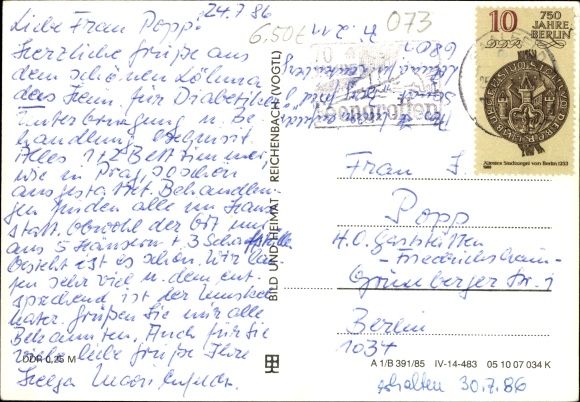 24.7.86
Liebe Frau Popp!
Herzliche Grüße aus
dem schönen Löbma
das Heim für Diabetiker
Unterbringung u. Be-
handlung
Alles 1 1/2 Bettzimmer,
wie in Prag, so schön
ausgestattet. Behandlun-
gen finden alle im Haus
statt. Obwohl der Ort nur
aus 5 Häusern + 3
besteht ist es schön. Wir lau-
fen sehr viel u. dem ent-
sprechend ist der Muskel-
kater. Grüßen Sie mir alle
Bekannten. Auch für Sie
liebe Grüße Ihre
Helga
DDR 0,25 M
BILD UND HEIMAT REICHENBACH (VOGTL)
6.50€
073
6801
10
DDR
750
JAHRE
BERLIN
Ältestes Stadtsiegel von Berlin 1253
1986
Frau I.
Popp
H.O. Gaststätten
Friedrichshain
Grünberger Str. 1
Berlin
1034
A 1/B 391/85 IV-14-483 05 10 07 034 K
erhalten 30.7.86